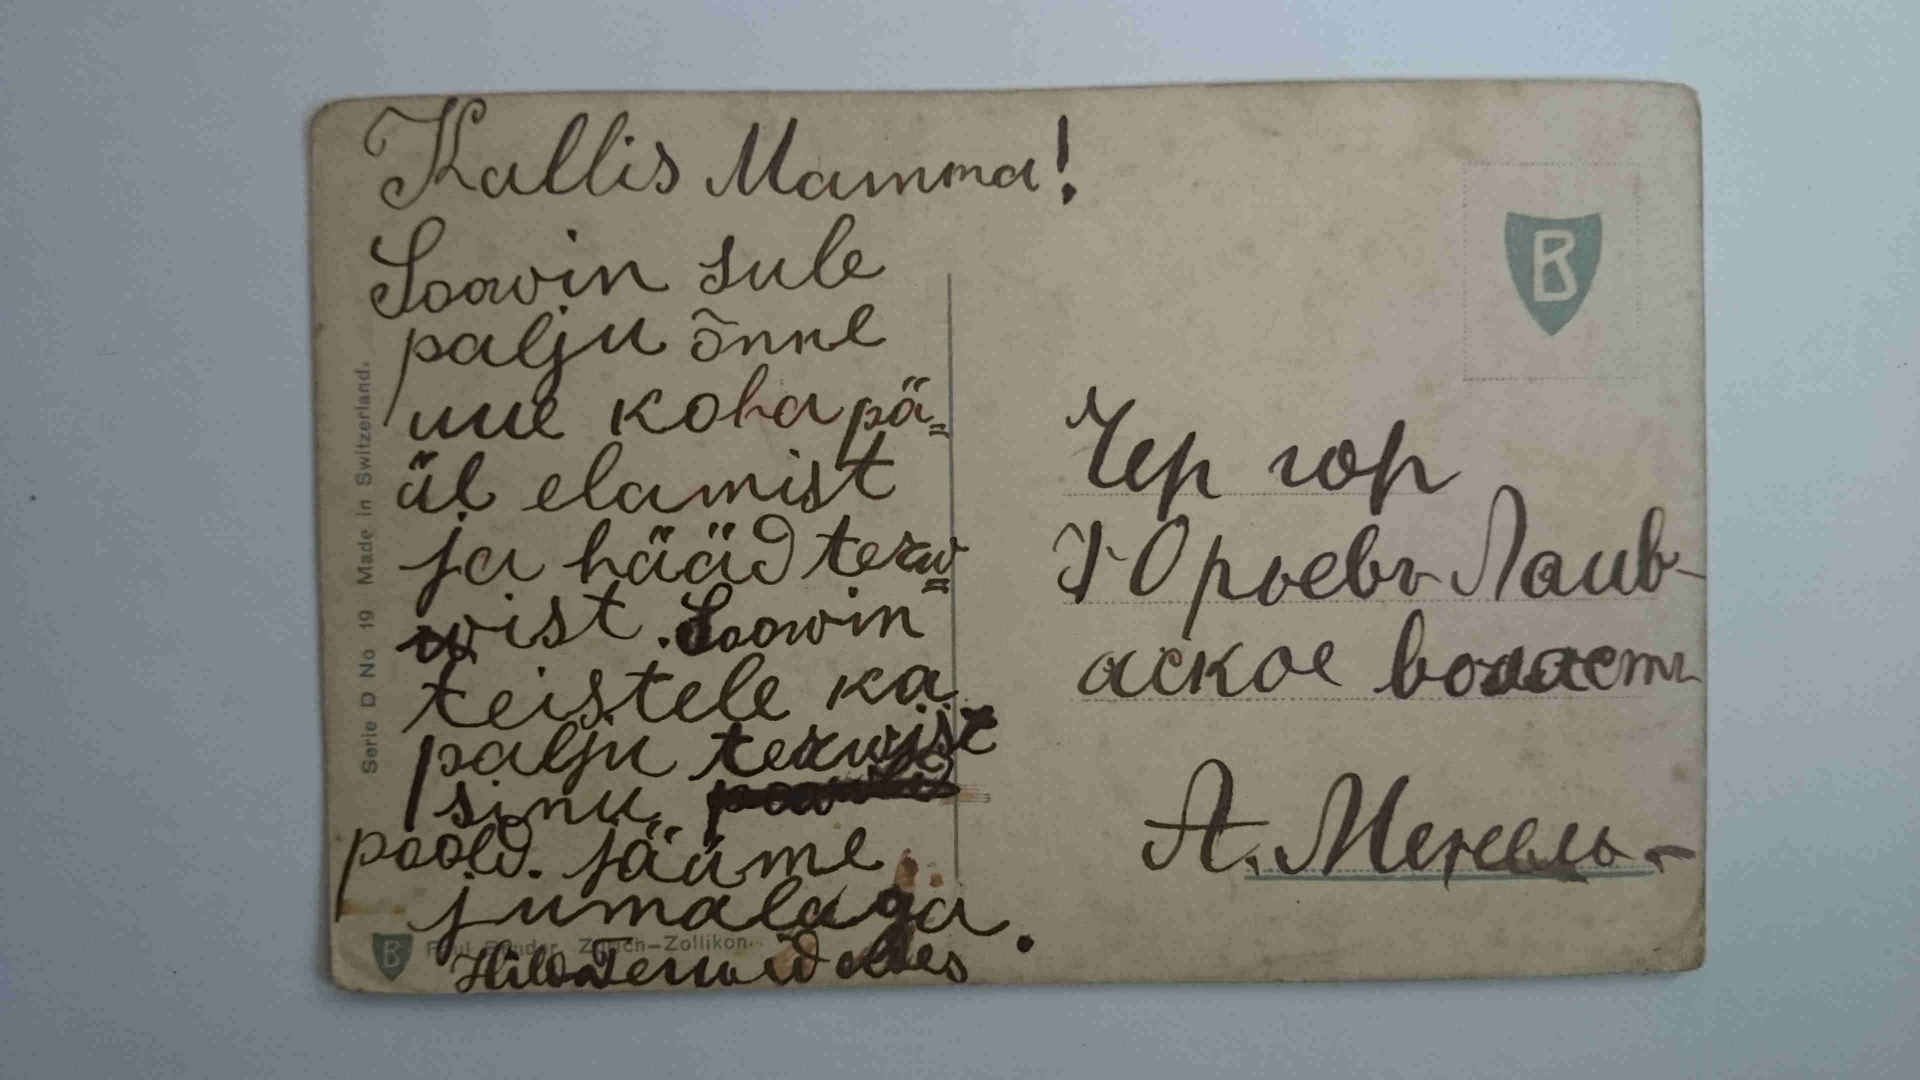 Kallis Mamma!
Soowin sule
palju õnne
uue koha pä=
äl elamist
ja hääd terw=
wist. Soowin
teistele ka
palju terwist
sinu
poold. Jääme
jumalaga.
Serie D No 19 Made in Switzerland.
B Paul Bender, Zürich-Zollikon.
B
Чер гор
Юрьевъ Лаив-
аское волость
А.